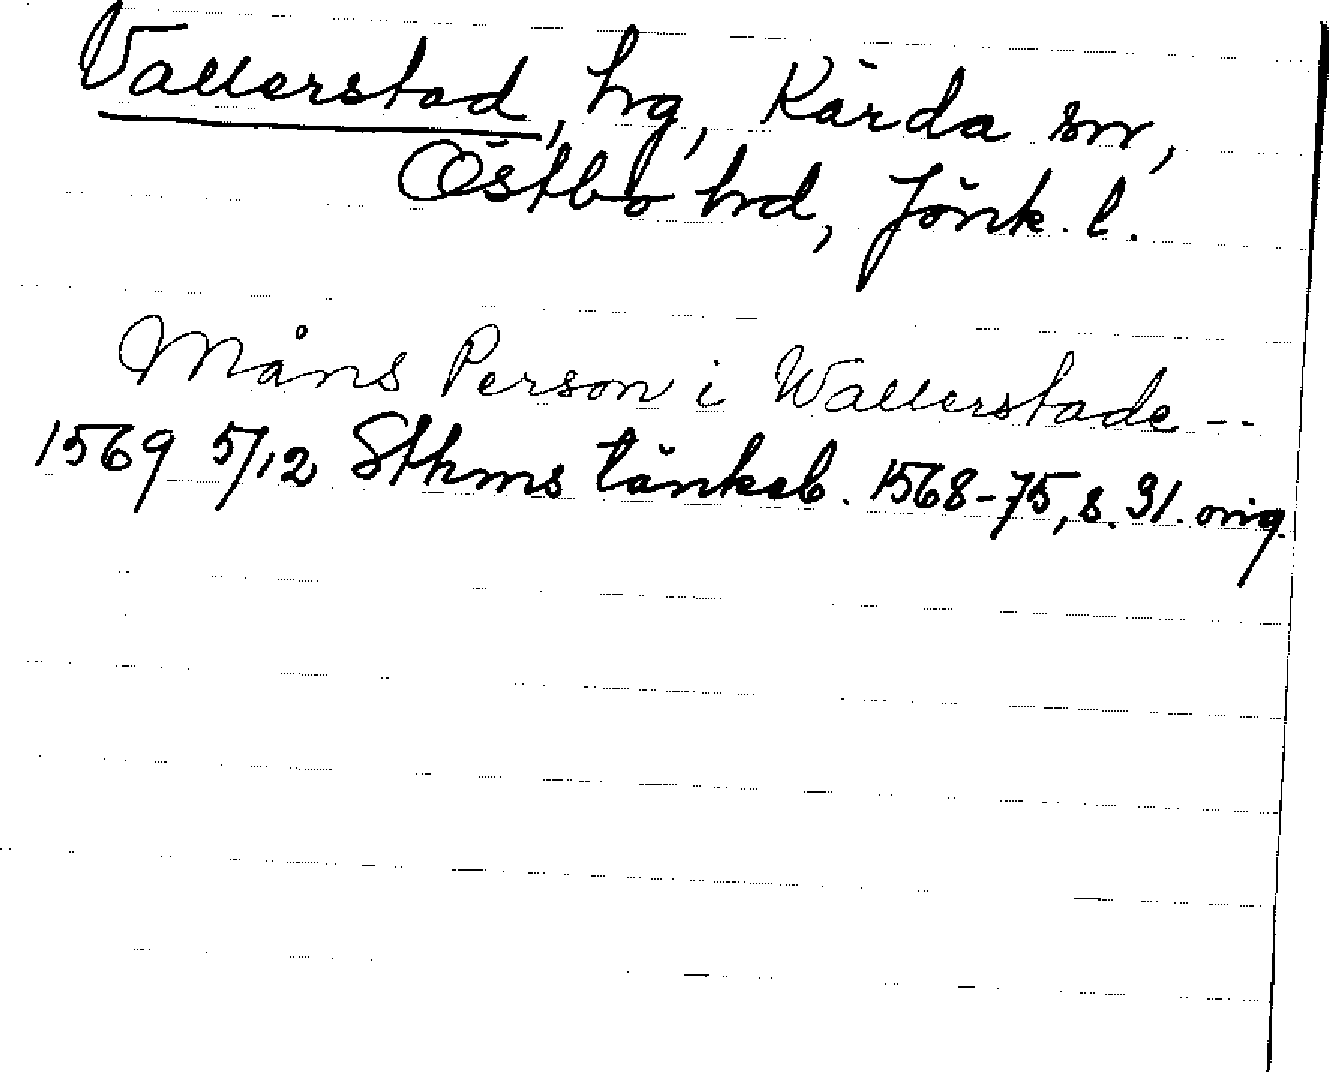 Vallerstad, hg, Kärda sn,
Östbo hd, Jönk. l.
Måns Person i Wallerstade --
1569 5/12 Sthms tänkeb. 1568-75, s. 91. orig.